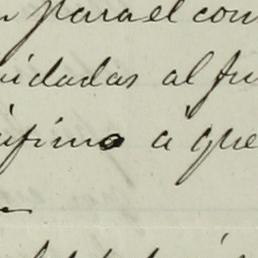 para el con
vidadas al fu
ínfimo a que